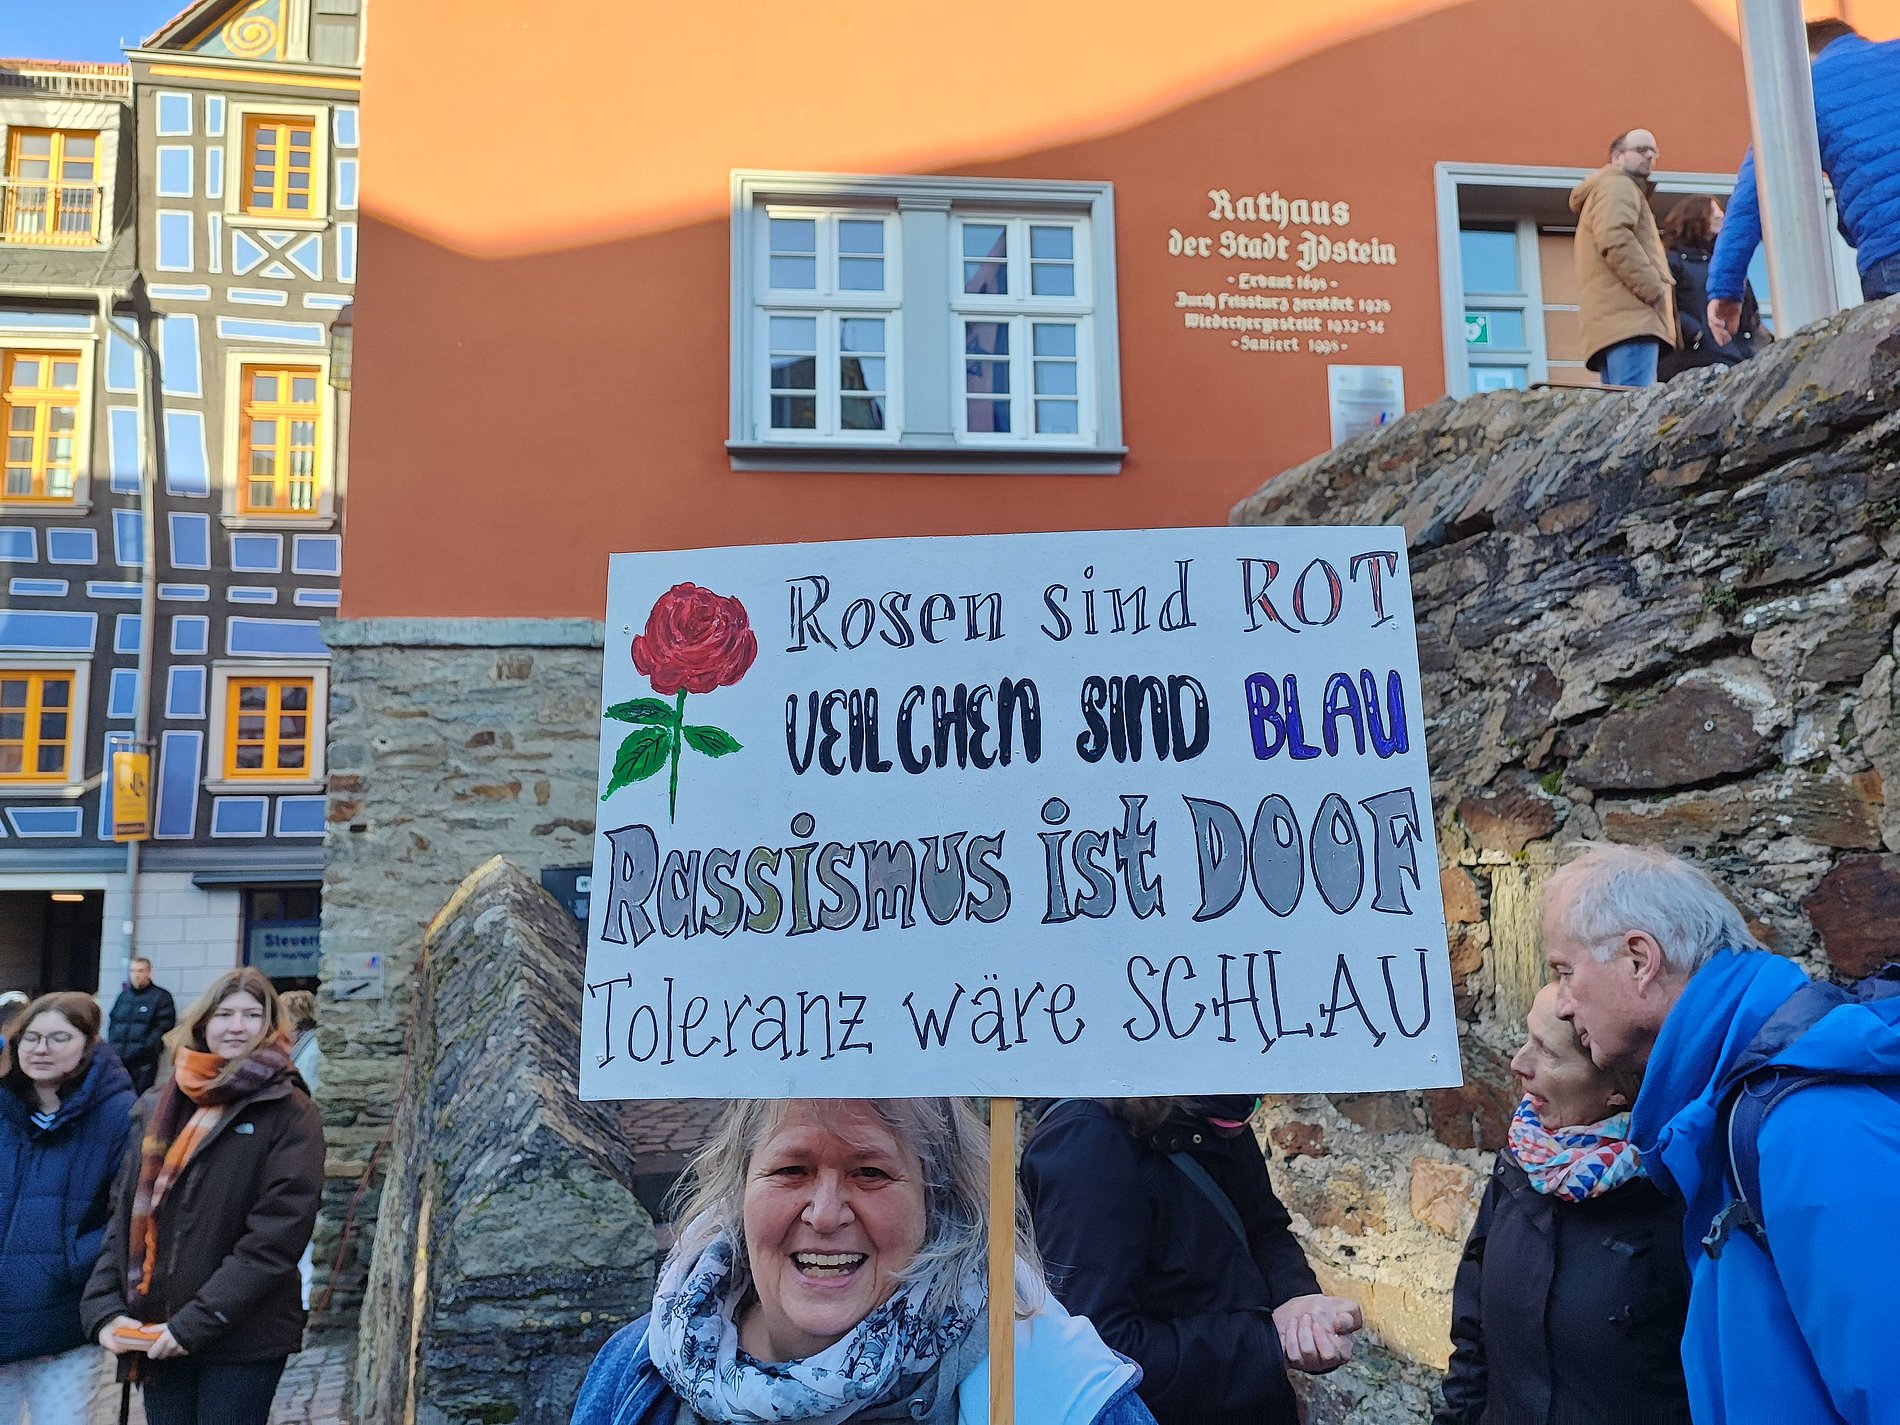 Rathaus
der Stadt Idstein
- Erbaut 1698 -
Durch Felssturz zerstört 1928
Wiederhergestellt 1932-34
- Saniert 1998 -
Rosen sind ROT
VEILCHEN SIND BLAU
Rassismus ist DOOF
Toleranz wäre SCHLAU